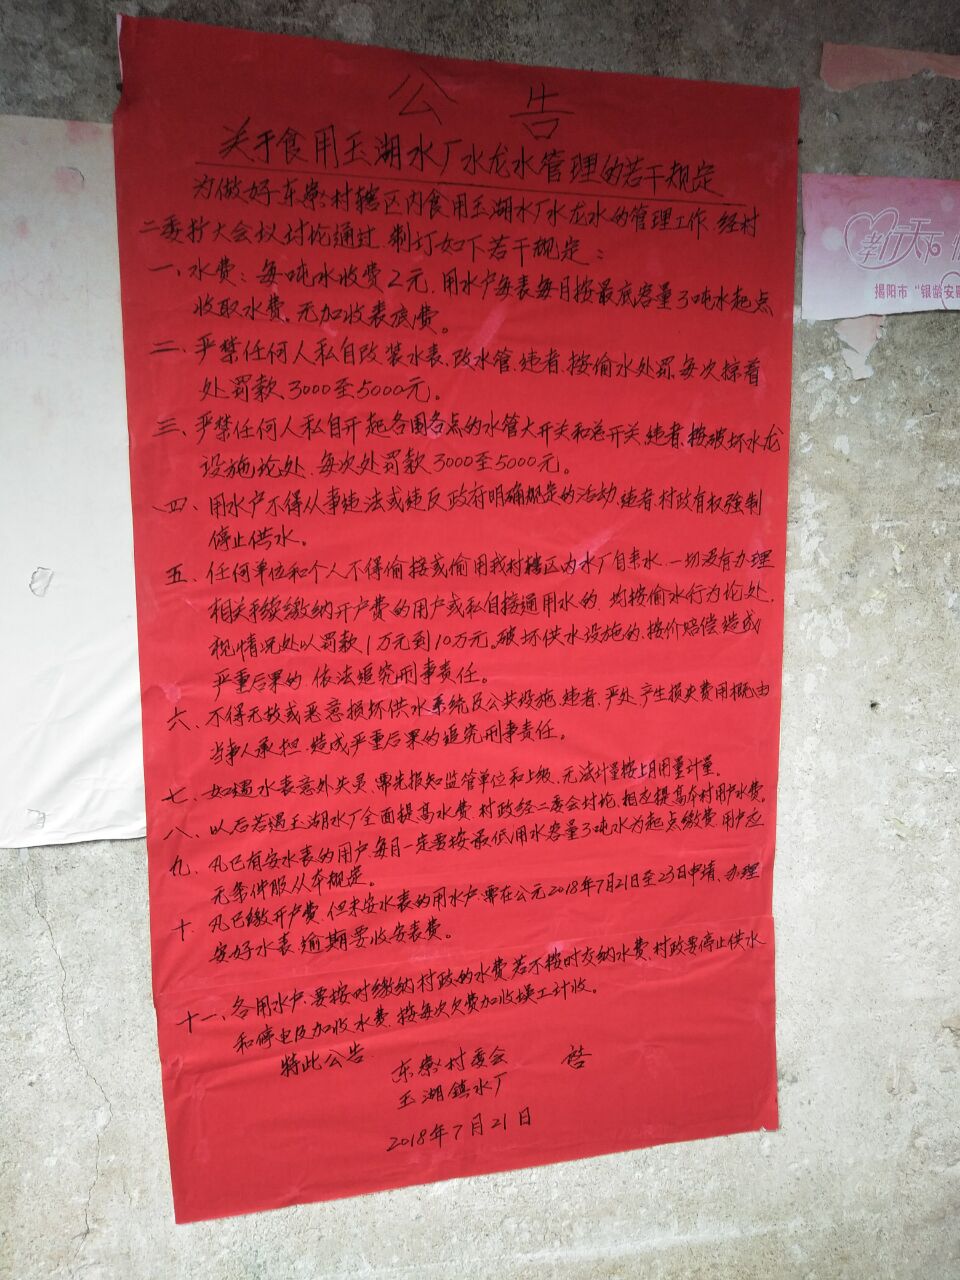 公告
关于食用玉湖水厂水龙水管理的若干规定
为做好东寮村辖区内食用玉湖水厂水龙水的管理工作,经村
二委扩大会议讨论通过,制订如下若干规定:
一、水费:每吨水收费2元,用水户每表每月按最底容量3吨水起点
收取水费。无加收表底费。
二、严禁任何人私自改装水表、改水管,违者,按偷水处罚,每次掠着
处罚款3000至5000元。
三、严禁任何人私自开起各围各点的水管大开关和总开关,违者,按破坏水龙
设施论处,每次处罚款3000至5000元。
四、用水户不得从事违法或违反政府明确规定的活动,违者,村政有权强制
停止供水。
五、任何单位和个人不得偷接或偷用我村辖区内水厂自来水,一切没有办理
相关手续缴纳开户费的用户或私自接通用水的,均按偷水行为论处,
视情况处以罚款1万元到10万元。破坏供水设施的,按价赔偿,造成
严重后果的,依法追究刑事责任。
六、不得无故或恶意损坏供水系统及公共设施,违者,严处,产生损失费用概由
当事人承担,造成严重后果的追究刑事责任。
七、如遇水表意外失灵,需先报知监管单位和上级,无法计量按上月用量计量。
八、以后若遇玉湖水厂全面提高水费,村政经二委会讨论,相应提高本村用户水费。
九、凡已有安水表的用户,每月一定要按最低用水容量3吨水为起点缴费,用户应
无条件服从本规定。
十、凡已缴开户费,但未安水表的用水户,需在公元2018年7月21日至23日申请、办理
安好水表,逾期要收安表费。
十一、各用水户,要按时缴纳村政的水费,若不按时交纳水费,村政要停止供水
和停电及加收水费,按每次欠费加收误工计收。
特此公告
东寮村委会 启
玉湖镇水厂
2018年7月21日
孝行天下
揭阳市“银龄安